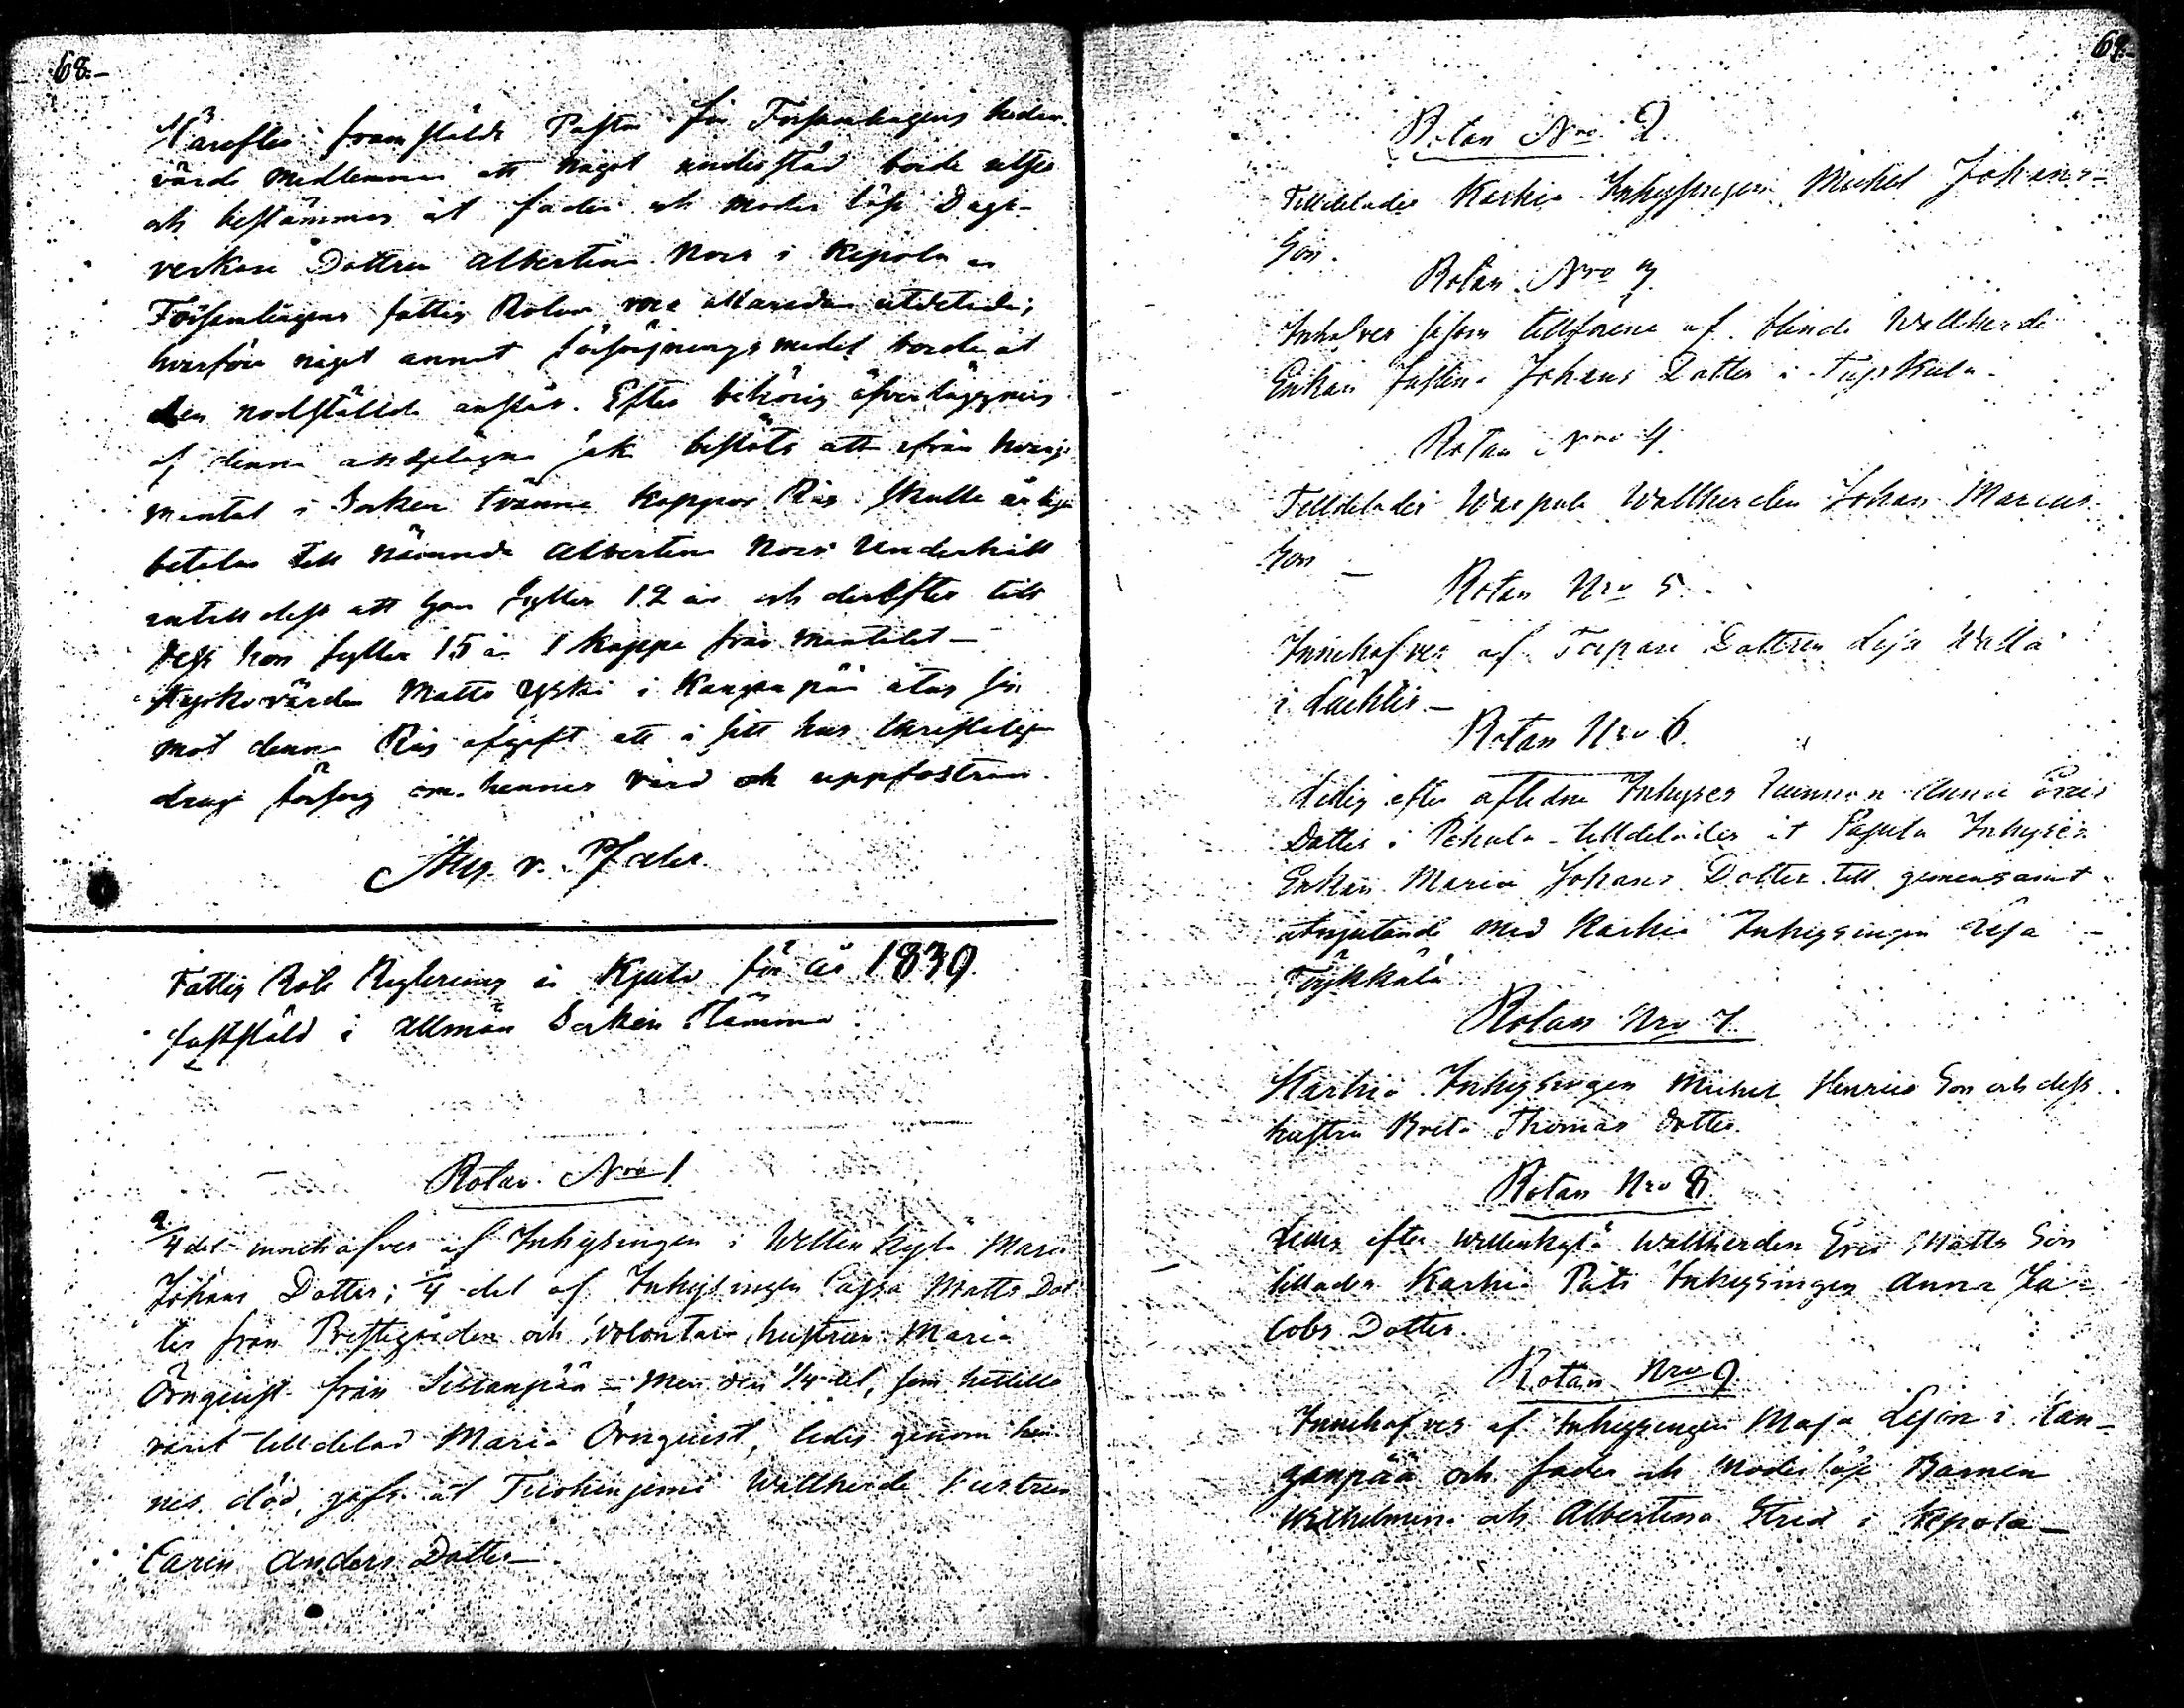 68.
Härefter framstälde Pastor för Församlingens hedervärde
värde medlemmar att något understöd borde utses
och bestämmas åt fader och moder löse Dags-
verkare Dottren Albertina Nors i Kepola
Församlingens fattig Rotar voro allaredan utdelade;
hvarföre något annat försörjningsmedel borde åt
den nödställda anslås. Efter behörig öfverläggning
af denna angelägna sak beslöts att ifrån hvarje
mantal i Socken tvänne kappor Råg skulle årligen
betalas till nämnde Albertina Nors Underhåll
intill dess att hon fyller 12 år och derefter till
dess hon fyller 15 år 1 kappe från mantalet —
Kyrkovärden Matts Yski i Kanganpää åtog sig
mot denna Råg afgift att i sitt hus Christeligen
draga försorg om hennes vård och uppfostran.
Aug. v. Pfaler.
Fattig Rote Reglering i Kjulo för år 1839.
fastställd i allmän Socken Stämma
Rotan Nro 1
2/4 del innehafves af Inhysingen i Wellenkylä Maria
Johans Dotter; 1/4 del af Inhysingen Cajsa Matts Dot
ter från Prestegården och Volontair hustrun Maria
Örnquist från Sillanpää — Men den 1/4 del, som hittills
varit tilldelad Maria Örnquist, ledig genom hen
nes död, gafs åt Tuohiniemi Wallherde hustrun
Carin Anders Dotter —
69.
Rotan Nro 2.
Tilldelades Karhia Inhysingen Michel Johans-
Son.
Rotan Nro 3.
Inhafves såsom tillförene af blinde Wallherde
Enkan Justina Johans Dotter i
Rotan Nro 4.
Tilldelades Wallherden Johan Marcus
Son —
Rotan Nro 5.
Innehafves af Torpare Dottren Lisa
i Lachtis —
Rotan Nro 6.
Ledig efter aflidne Inhyses quinnan Anna Erics
Dotter i tilldelades åt Inhyses
Enkan Maria Johans Dotter till gemensamt
åtnjutande med Karhia Inhysingen Lisa
Tyhkälä
Rotan Nro 7.
Karhia Inhysingen Michel Henrics Son och dess
hustru Greta Thomas Dotter.
Rotan Nro 8.
Ledig efter Wellenkylä Wallherden Eric Matts Son
tillades Karhia Inhysingen Anna Ja-
cobs Dotter.
Rotan Nro 9.
Innehafves af Inhysingen Maja Lejon i Kan-
ganpää och fader och moder löse Barnen
Wilhelmina och Albertina Strid i Kepola —